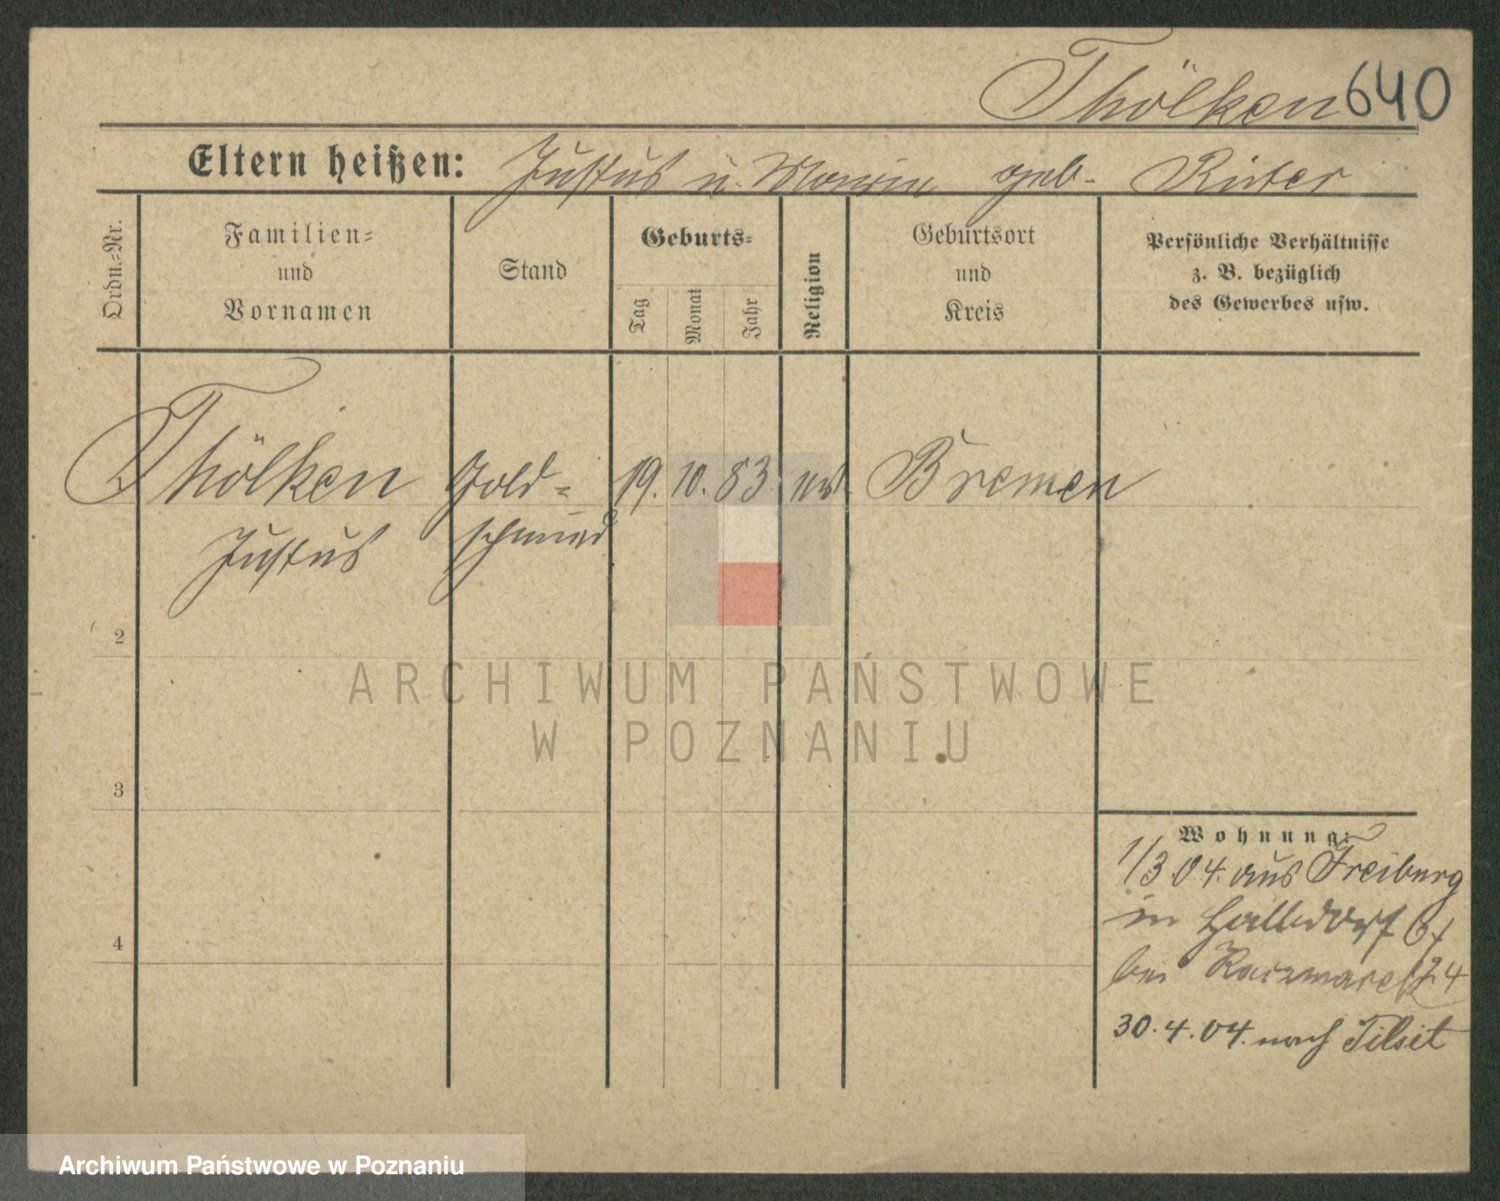 Thölken 640
Eltern heißen: Justus u. Marie geb. Rüter
Ordn.-Nr.
Familien-
und
Vornamen
Stand
Geburts-
Tag
Monat
Jahr
Religion
Geburtsort
und
Kreis
Persönliche Verhältnisse
z. B. bezüglich
des Gewerbes usw.
Thölken Gold- 19. 10. 83 Bremen
Justus schmied
2
3
4
Wohnung:
1/3 04. aus Freiburg
in Halbdorf
bei 24
30.4.04. nach Tilsit
ARCHIWUM PAŃSTWOWE
W POZNANIU
Archiwum Państwowe w Poznaniu